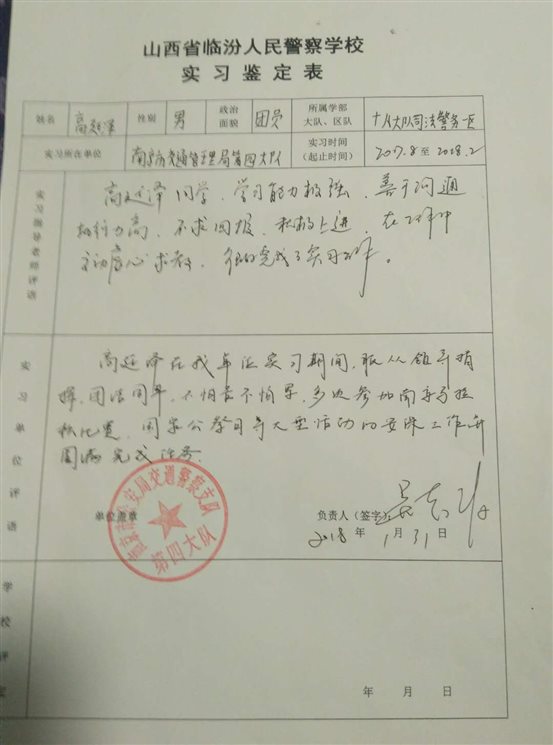 山西省临汾人民警察学校
实习鉴定表
姓名 高延泽 性别 男 政治面貌 团员 所属学部大队、区队 十八大队司法警务一区
实习所在单位 南京市交通管理局第四大队 实习时间(起止时间) 2017.8 至 2018.2
实习指导老师评语
高延泽同学,学习能力极强,善于沟通
执行力高,不求回报,积极上进,在工作中
主动虚心求教,很好完成了实习工作。
实习单位评语
高延泽在我单位实习期间,服从领导指
挥,团结同事,不怕苦不怕累,多次参加南京马拉
松比赛、国家公祭日等大型活动的安保工作并
圆满完成任务.
单位盖章
负责人(签字)
2018 年 1 月 31 日
南京市公安局交通警察支队
第四大队
学校评定
年 月 日